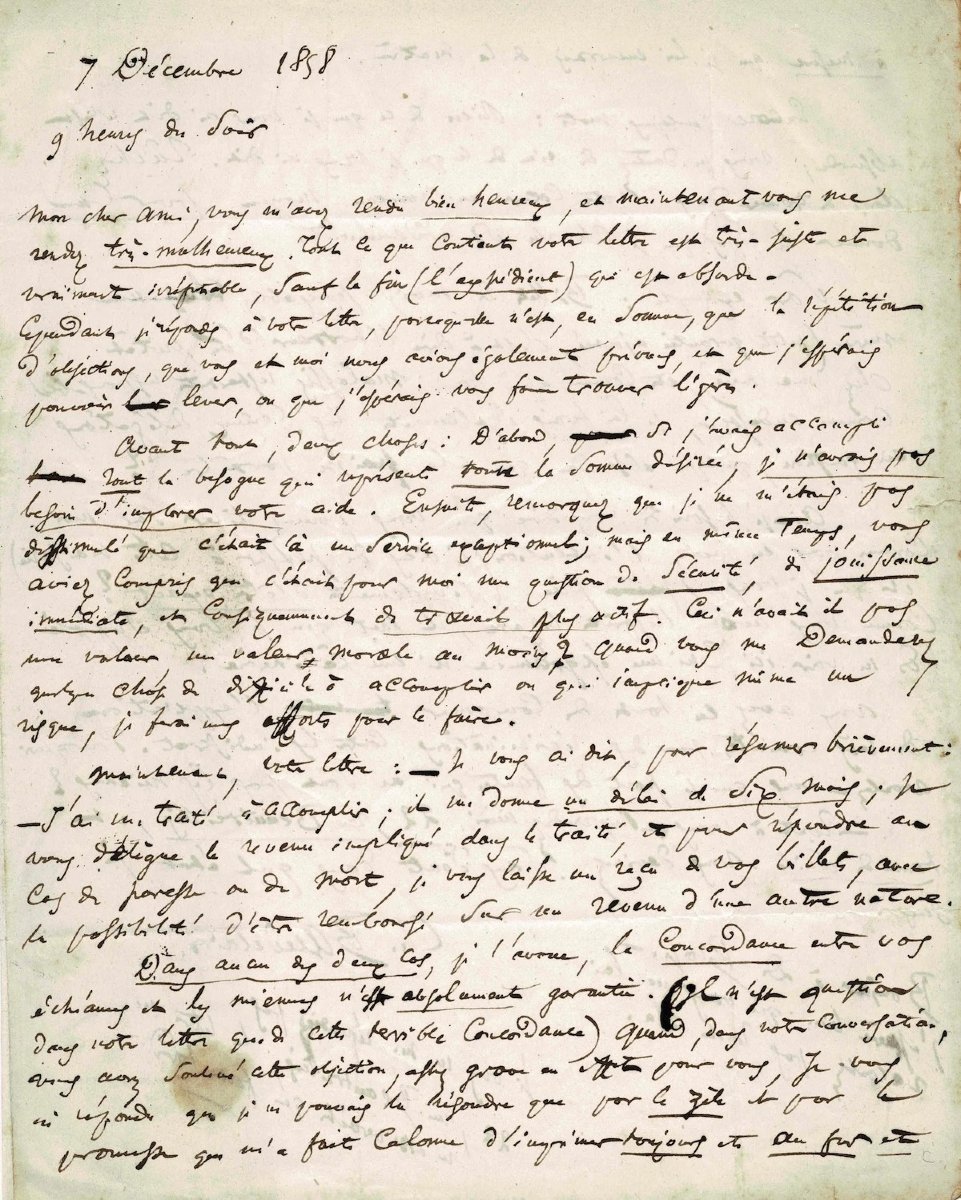 7 Décembre 1858
9 heures du Soir
Mon cher ami, vous m'avez rendu bien heureux, et maintenant vous me
rendez très-malheureux. Tout ce que contient votre lettre est très-juste et
vraiment irréfutable, sauf la fin (l'expédient) qui est absurde.
Cependant je réponds à votre lettre, parce qu'elle n'est, en somme, que la répétition
d'objections, que vous et moi nous avions également prévues, et que j'espérais
pouvoir lever, ou que j'espérais vous faire trouver légères.
Avant tout, deux choses : D'abord, si j'avais accompli
tout la besogne qui représente toute la somme désirée, je n'aurais pas
besoin d'implorer votre aide. Ensuite, remarquez que je ne m'étais pas
dissimulé que c'était là un service exceptionnel ; mais en même temps, vous
aviez compris que c'était pour moi une question de sécurité, de jouissance
immédiate, et conséquemment de travail plus actif. Ceci n'avait il pas
une valeur, une valeur morale au moins ? Quand vous me demanderez
quelque chose de difficile à accomplir ou qui implique même un
risque, je ferai mes efforts pour le faire.
Maintenant, votre lettre : — Je vous ai dit, pour résumer brièvement :
— J'ai un traité à accomplir ; il me donne un délai de six mois ; je
vous délègue le revenu impliqué dans le traité, et pour répondre au
cas de paresse ou de mort, je vous laisse un reçu de vos billets, avec
la possibilité d'être remboursé sur un revenu d'une autre nature.
Dans aucun des deux cas, je l'avoue, la concordance entre vos
échéances et les miennes n'est absolument garantie. (Il n'est question
dans votre lettre que de cette terrible concordance) Quand, dans notre conversation,
vous avez soulevé cette objection, assez grave en effet pour vous, je vous
ai répondu que je ne pouvais la résoudre que par le zèle et par la
promesse que m'a fait Calonne d'imprimer toujours et au fur et